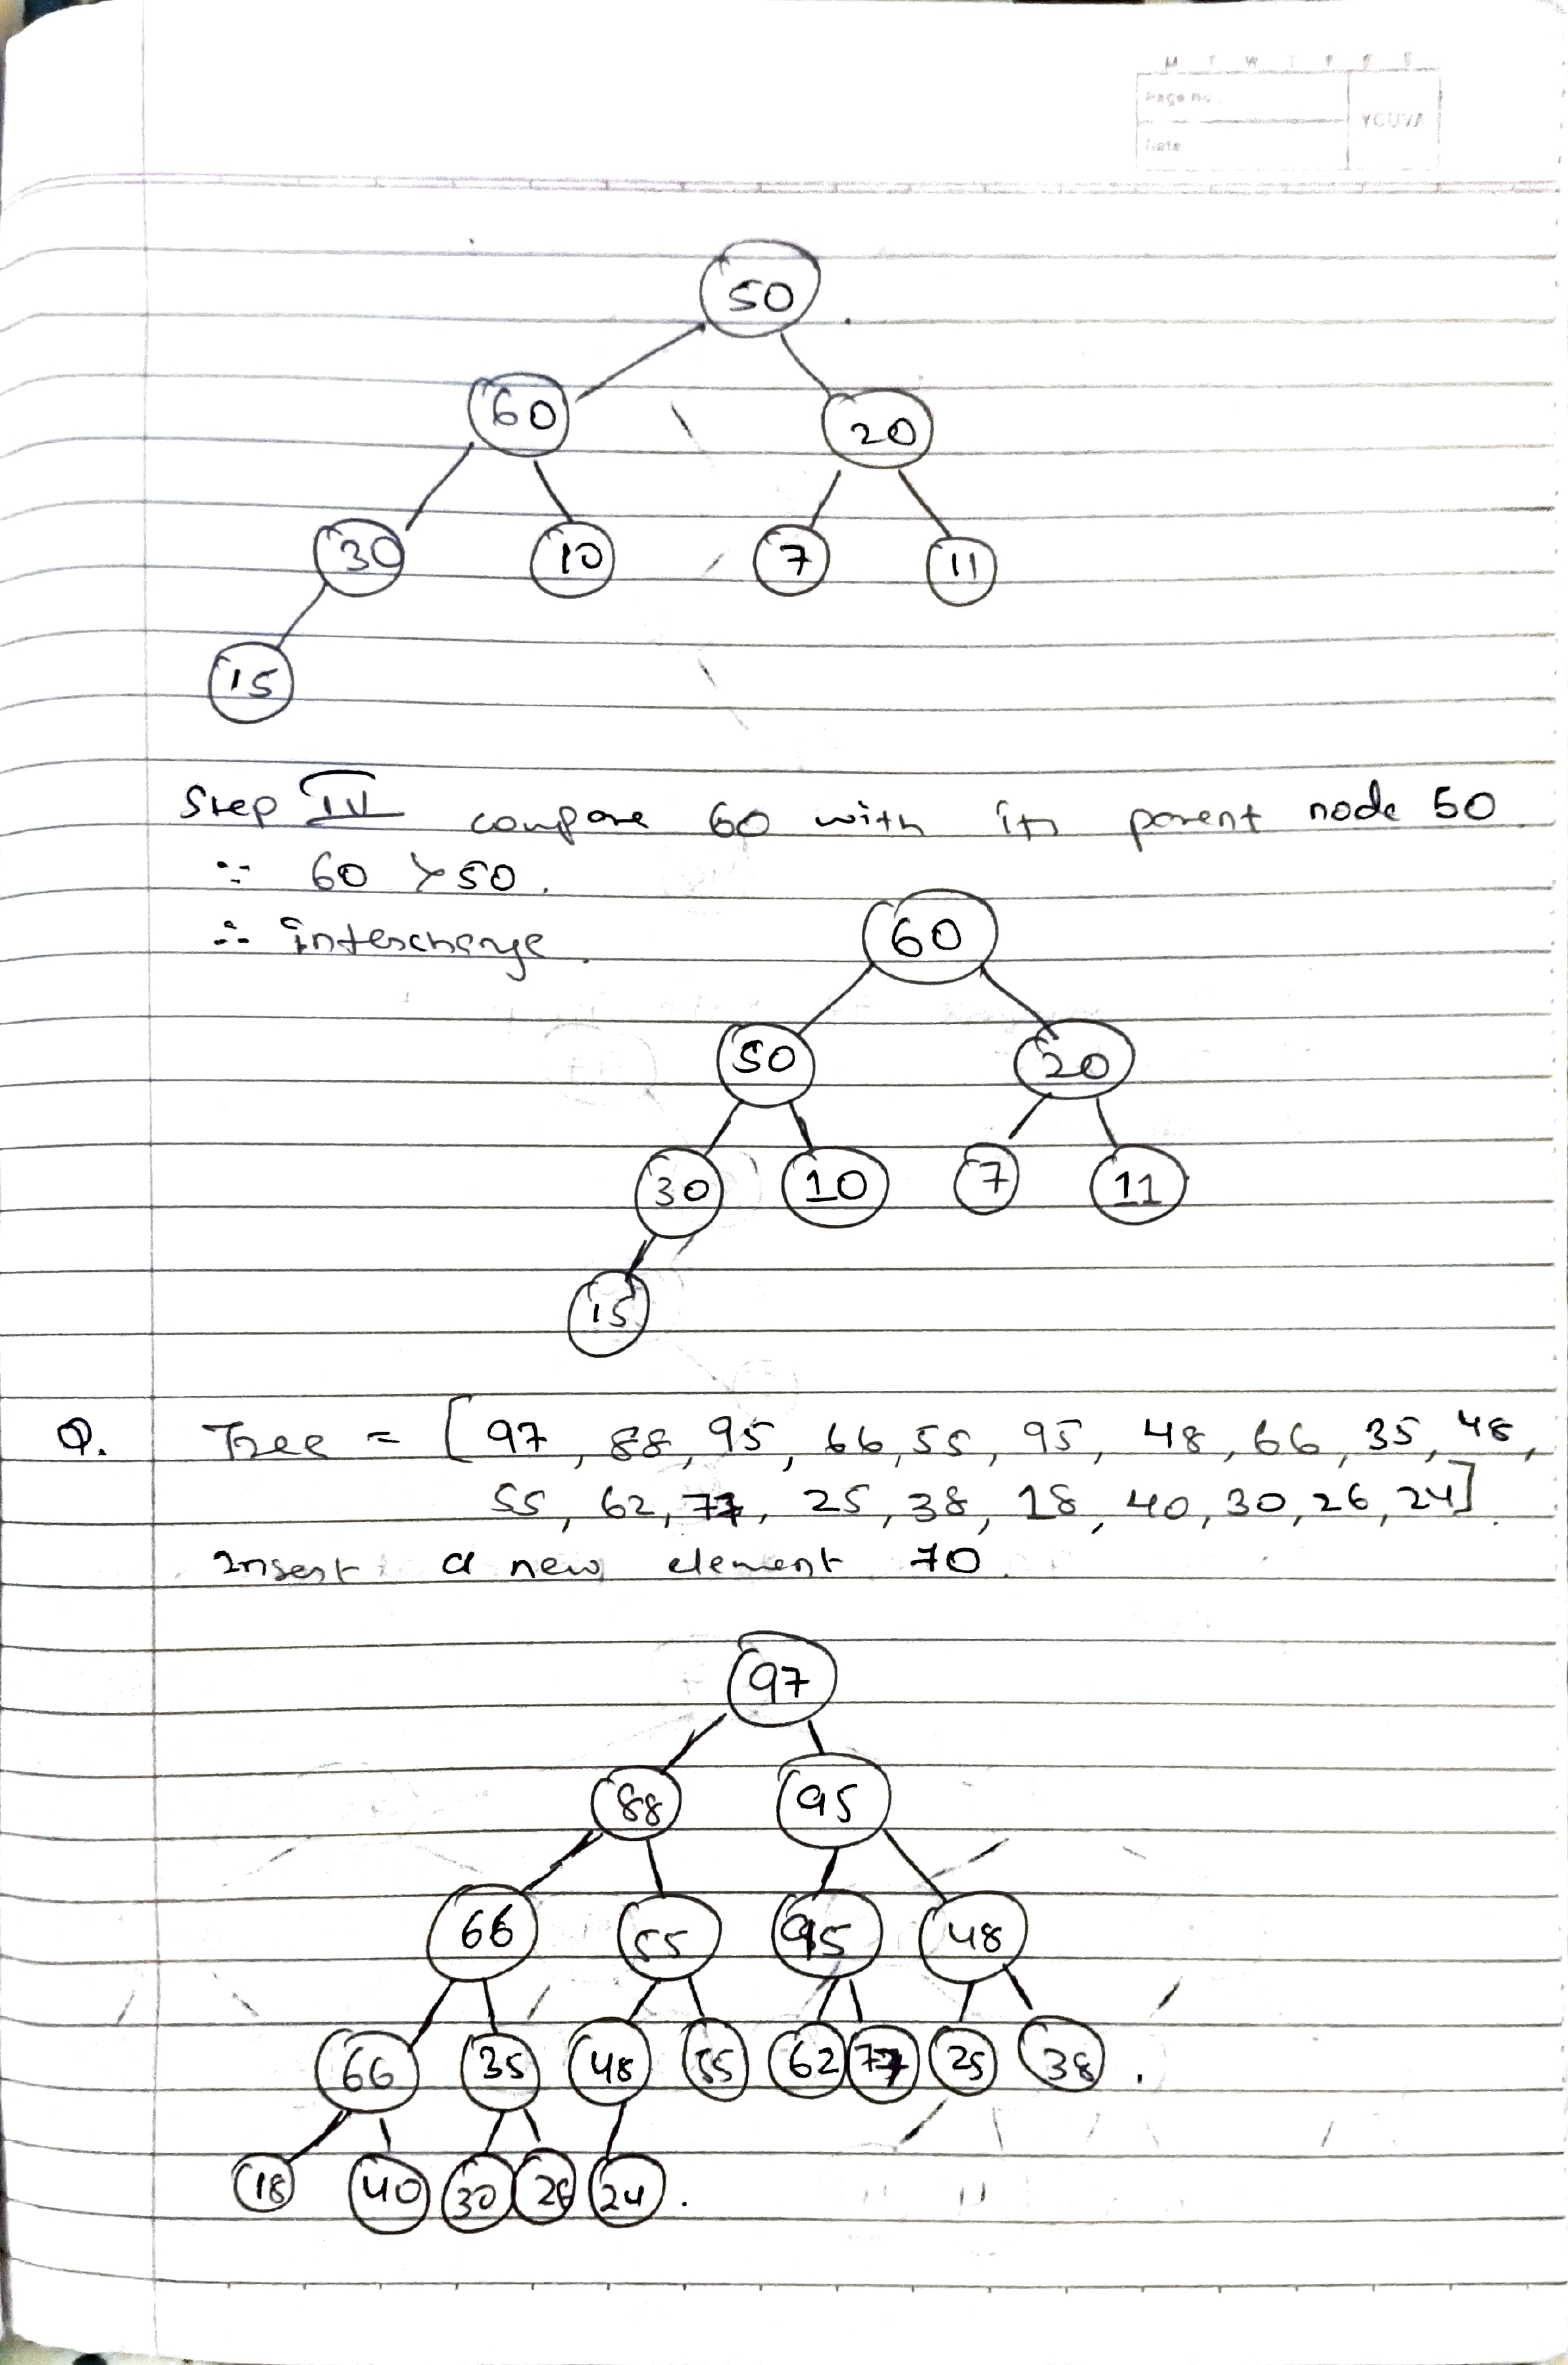 M T W T F S S
Page No.
YOUVA
Date
50
60 20
30 10 7 11
15
Step IV compare 60 with its parent node 50
∵ 60 > 50.
∴ interchange.
60
50 20
30 10 7 11
15
Q. Tree = [97, 88, 95, 66, 55, 95, 48, 66, 35, 48,
55, 62, 77, 25, 38, 18, 40, 30, 26, 24].
Insert a new element 70.
97
88 95
66 55 95 48
66 35 48 55 62 77 25 38.
18 40 30 26 24.